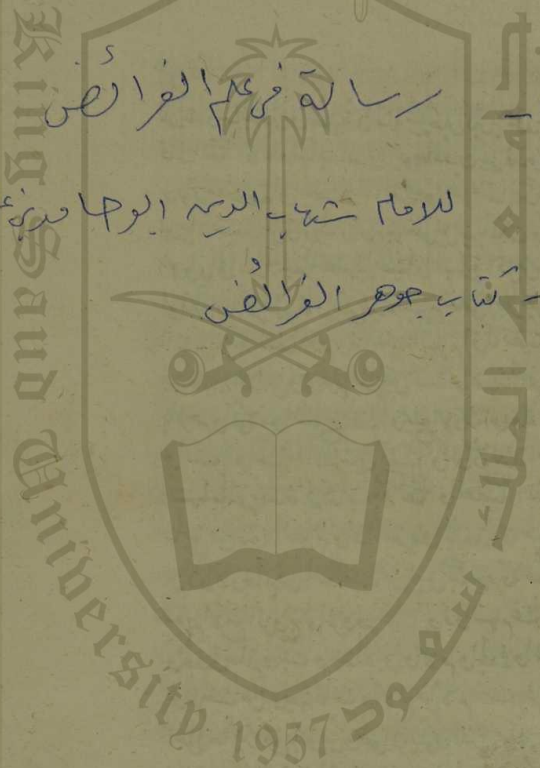 - رسالة في علم الفرائض
للامام شهاب الدين ابو حامد بن
- كتاب جوهر الفرائض
King Saud University 1957
جامعة الملك سعود